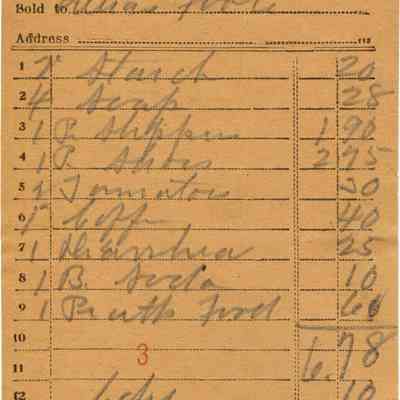 Sold to
Address
1 2# Starch 20
2 4 Soap 28
3 1 P. Slippers 1 90
4 1 P. Shoes 2 75
5 2 Tomatoes 30
6 1# Coffee 40
7 1 Diarrhea 25
8 1 B. Soda 10
9 1 60
10 6.78
3
11
12 10